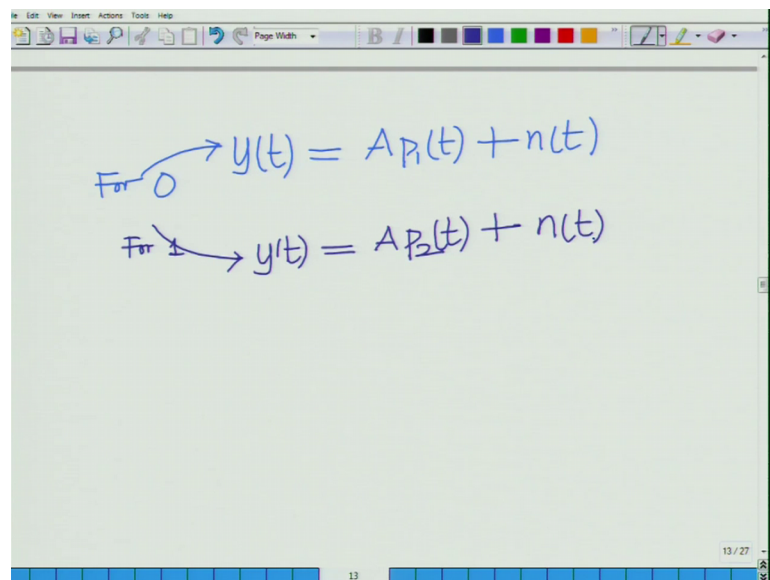 le Edit View Insert Actions Tools Help
Page Width B I
For 0 → y(t) = A p₁(t) + n(t)
For 1 → y(t) = A p₂(t) + n(t)
13 / 27
13